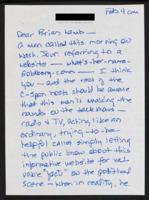 Feb. 4 am
Dear Brian Lamb —
A man called this morning on
Wash. Jour. referring to a
website — what's-her-name-
Goldberg.com — I think
you - and the rest of the
C-Span hosts should be aware
that this man is making the
rounds on the talk shows -
radio & TV, acting like an
ordinary, trying-to-be-
helpful caller simply letting
the public know about this
informative website for val-
uable "info" on the political
scene — when in reality, he